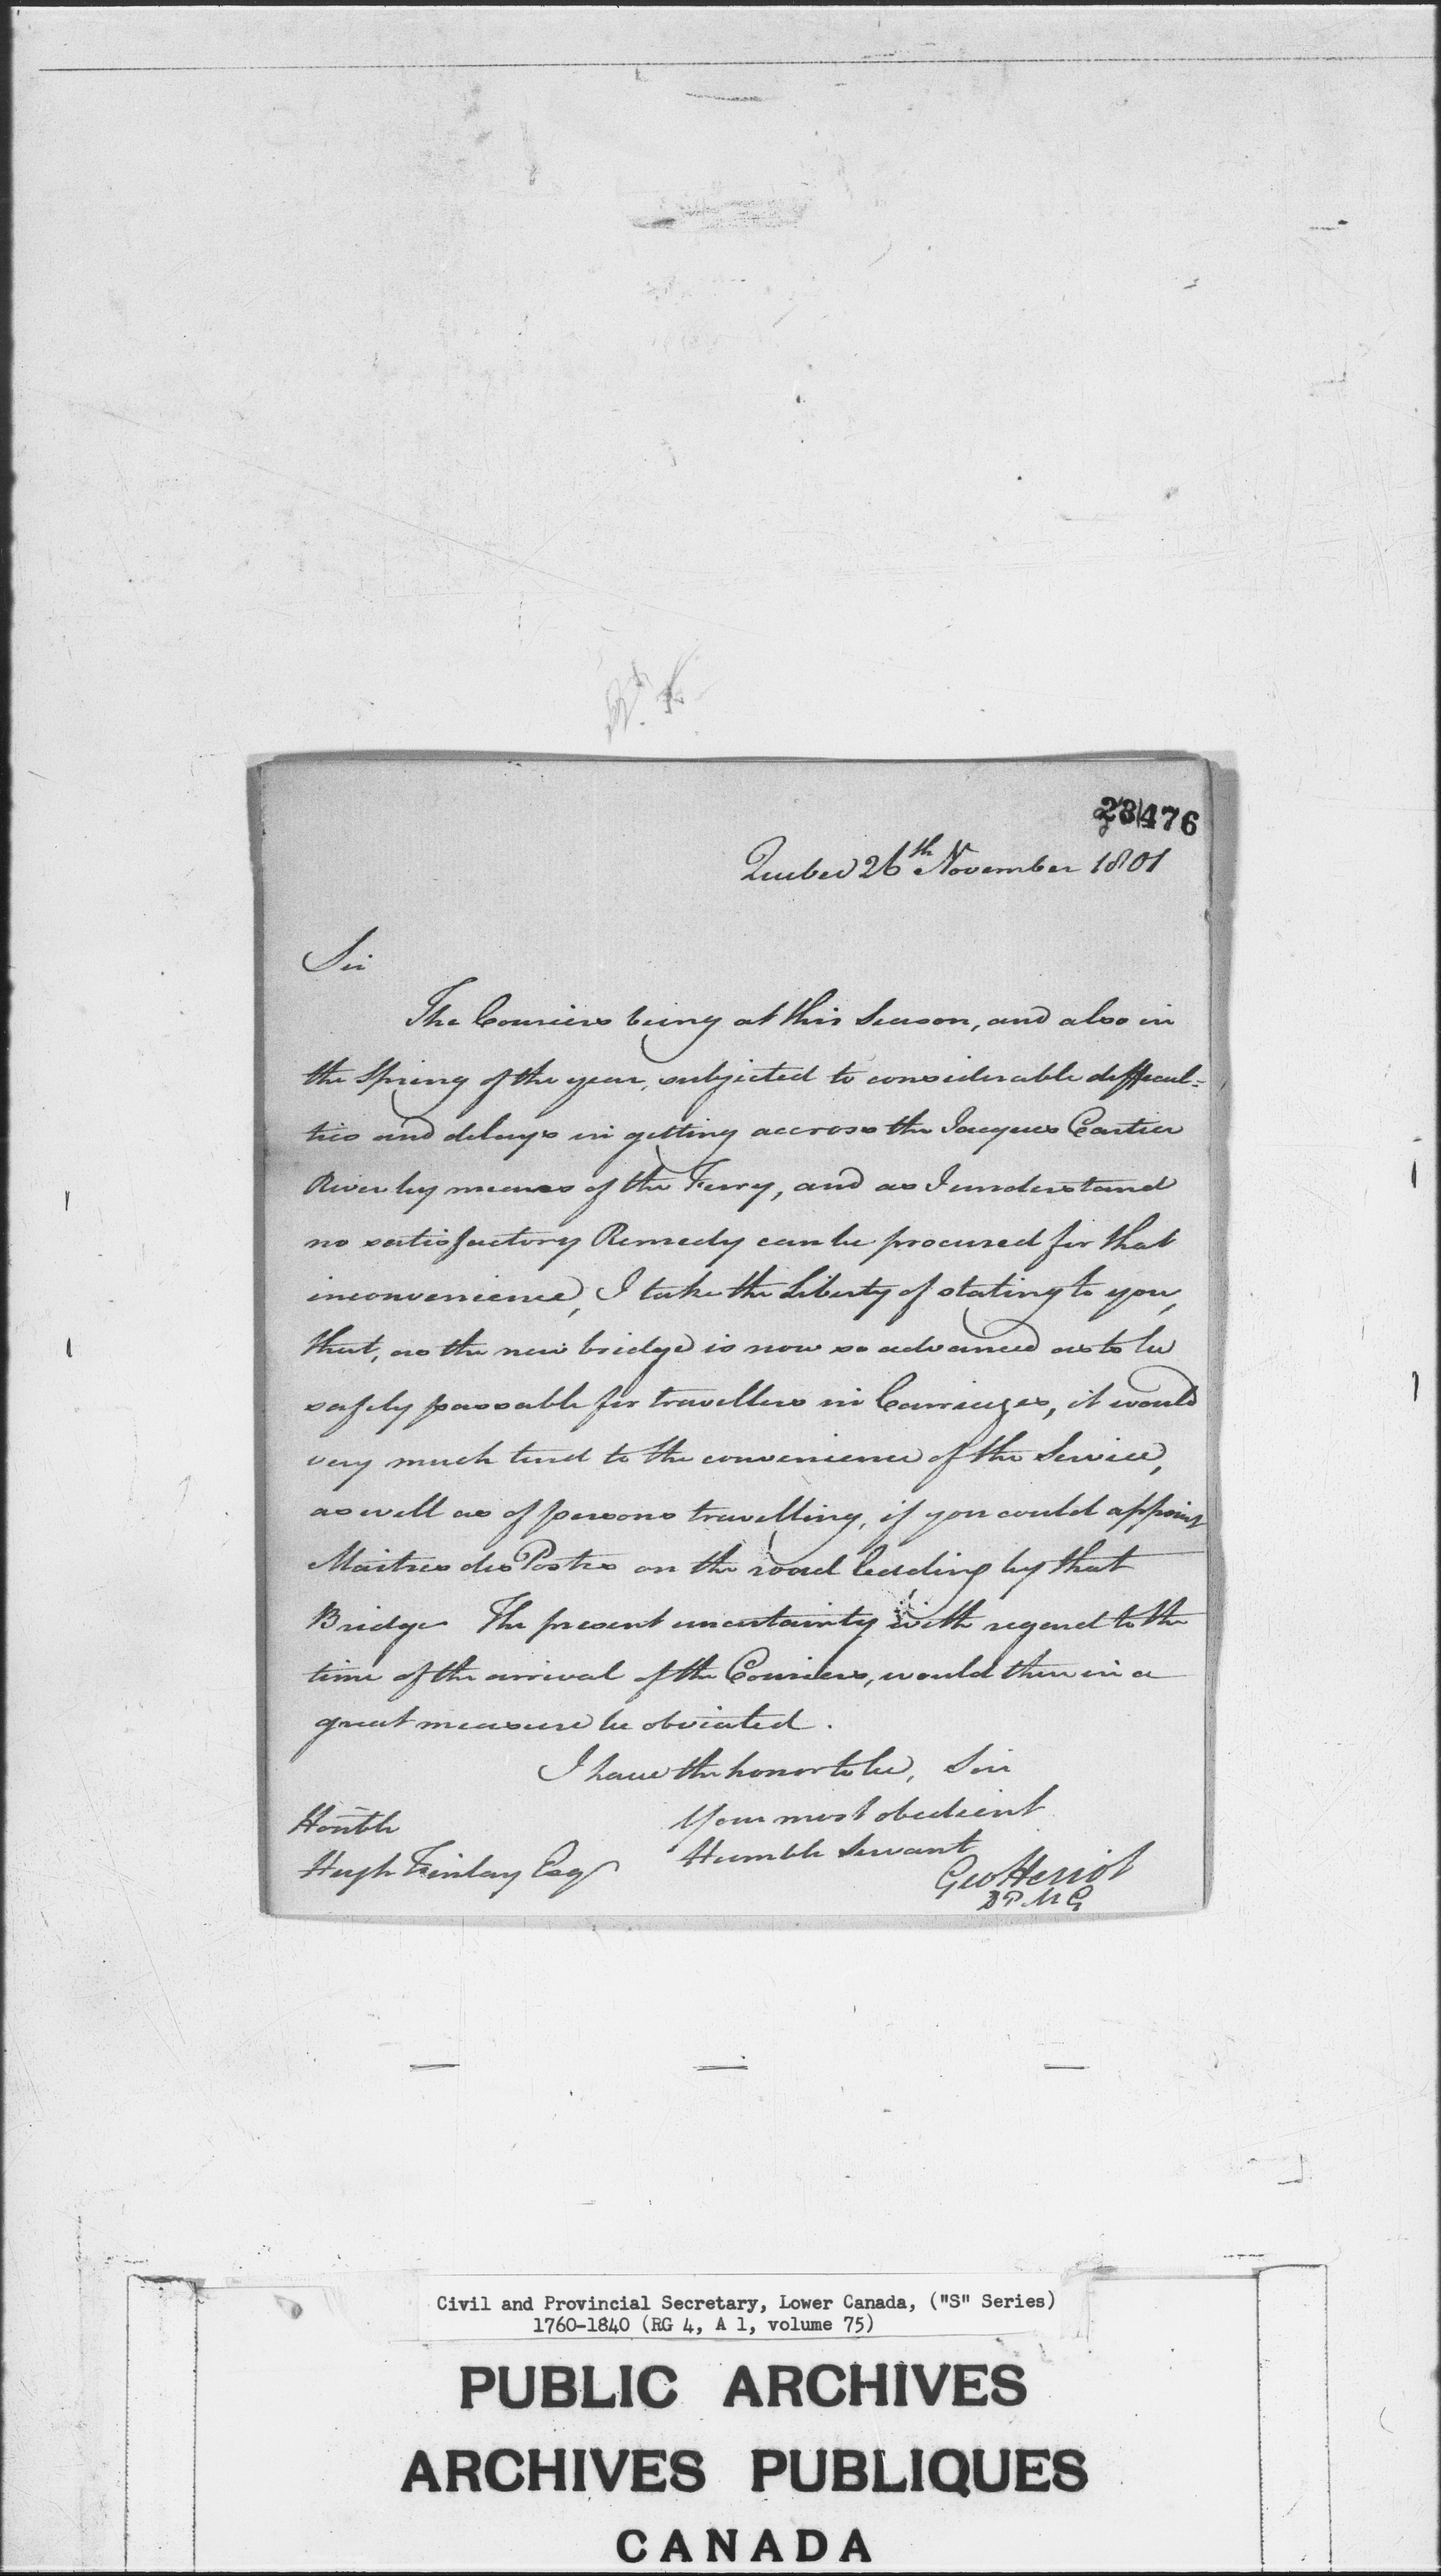 23476
Quebec 26th November 1801
Sir
The Couriers being at this Season, and also in
the Spring of the year, subjected to considerable difficul=
ties and delays in getting accross the Jacques Cartier
River by means of the Ferry, and as I understand
no satisfactory Remedy can be procured for that
inconvenience, I take the Liberty of stating to you,
that, as the new bridge is now so advanced as to be
safely passable for travellers in Carriages, it would
very much tend to the convenience of the Service,
as well as of persons travelling, if you could appoint
Maitres des Postes on the road leading by that
Bridge The present uncertainty with regard to the
time of the arrival of the Couriers, would then in a
great measure be obviated.
I have the honor to be, Sir
Your most obedient
Humble Servant
Geo Heriot
D P M G
Honble
Hugh Finlay Esqr
Civil and Provincial Secretary, Lower Canada, ("S" Series)
1760-1840 (RG 4, A 1, volume 75)
PUBLIC ARCHIVES
ARCHIVES PUBLIQUES
CANADA